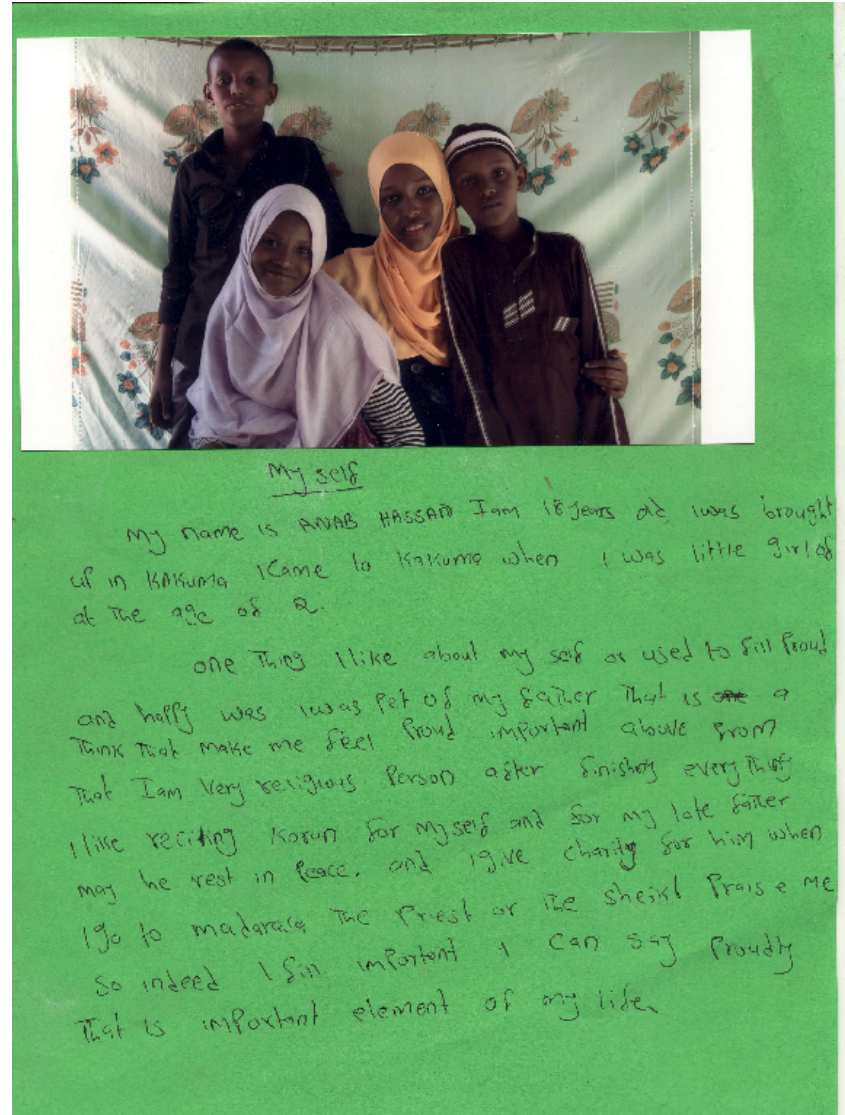 My self
My name is ANAB HASSAN Iam 18 years old iwas brought
up in KAKuma iCame to Kakuma when i was little girl of
at The age of 2.
one Thing ilike about my self or used to fill Proud
and happy was iwas Pet of my father That is a
Think That make me feel Proud important above from
That Iam Very religious Person after finishing every Thing
ilike reciting Koran for myself and for my late father
may he rest in Peace. and igive charity for him when
igo to madarasa The Priest or The sheikh Praise me
So indeed i fill important i can say Proudly
That is important element of my life.